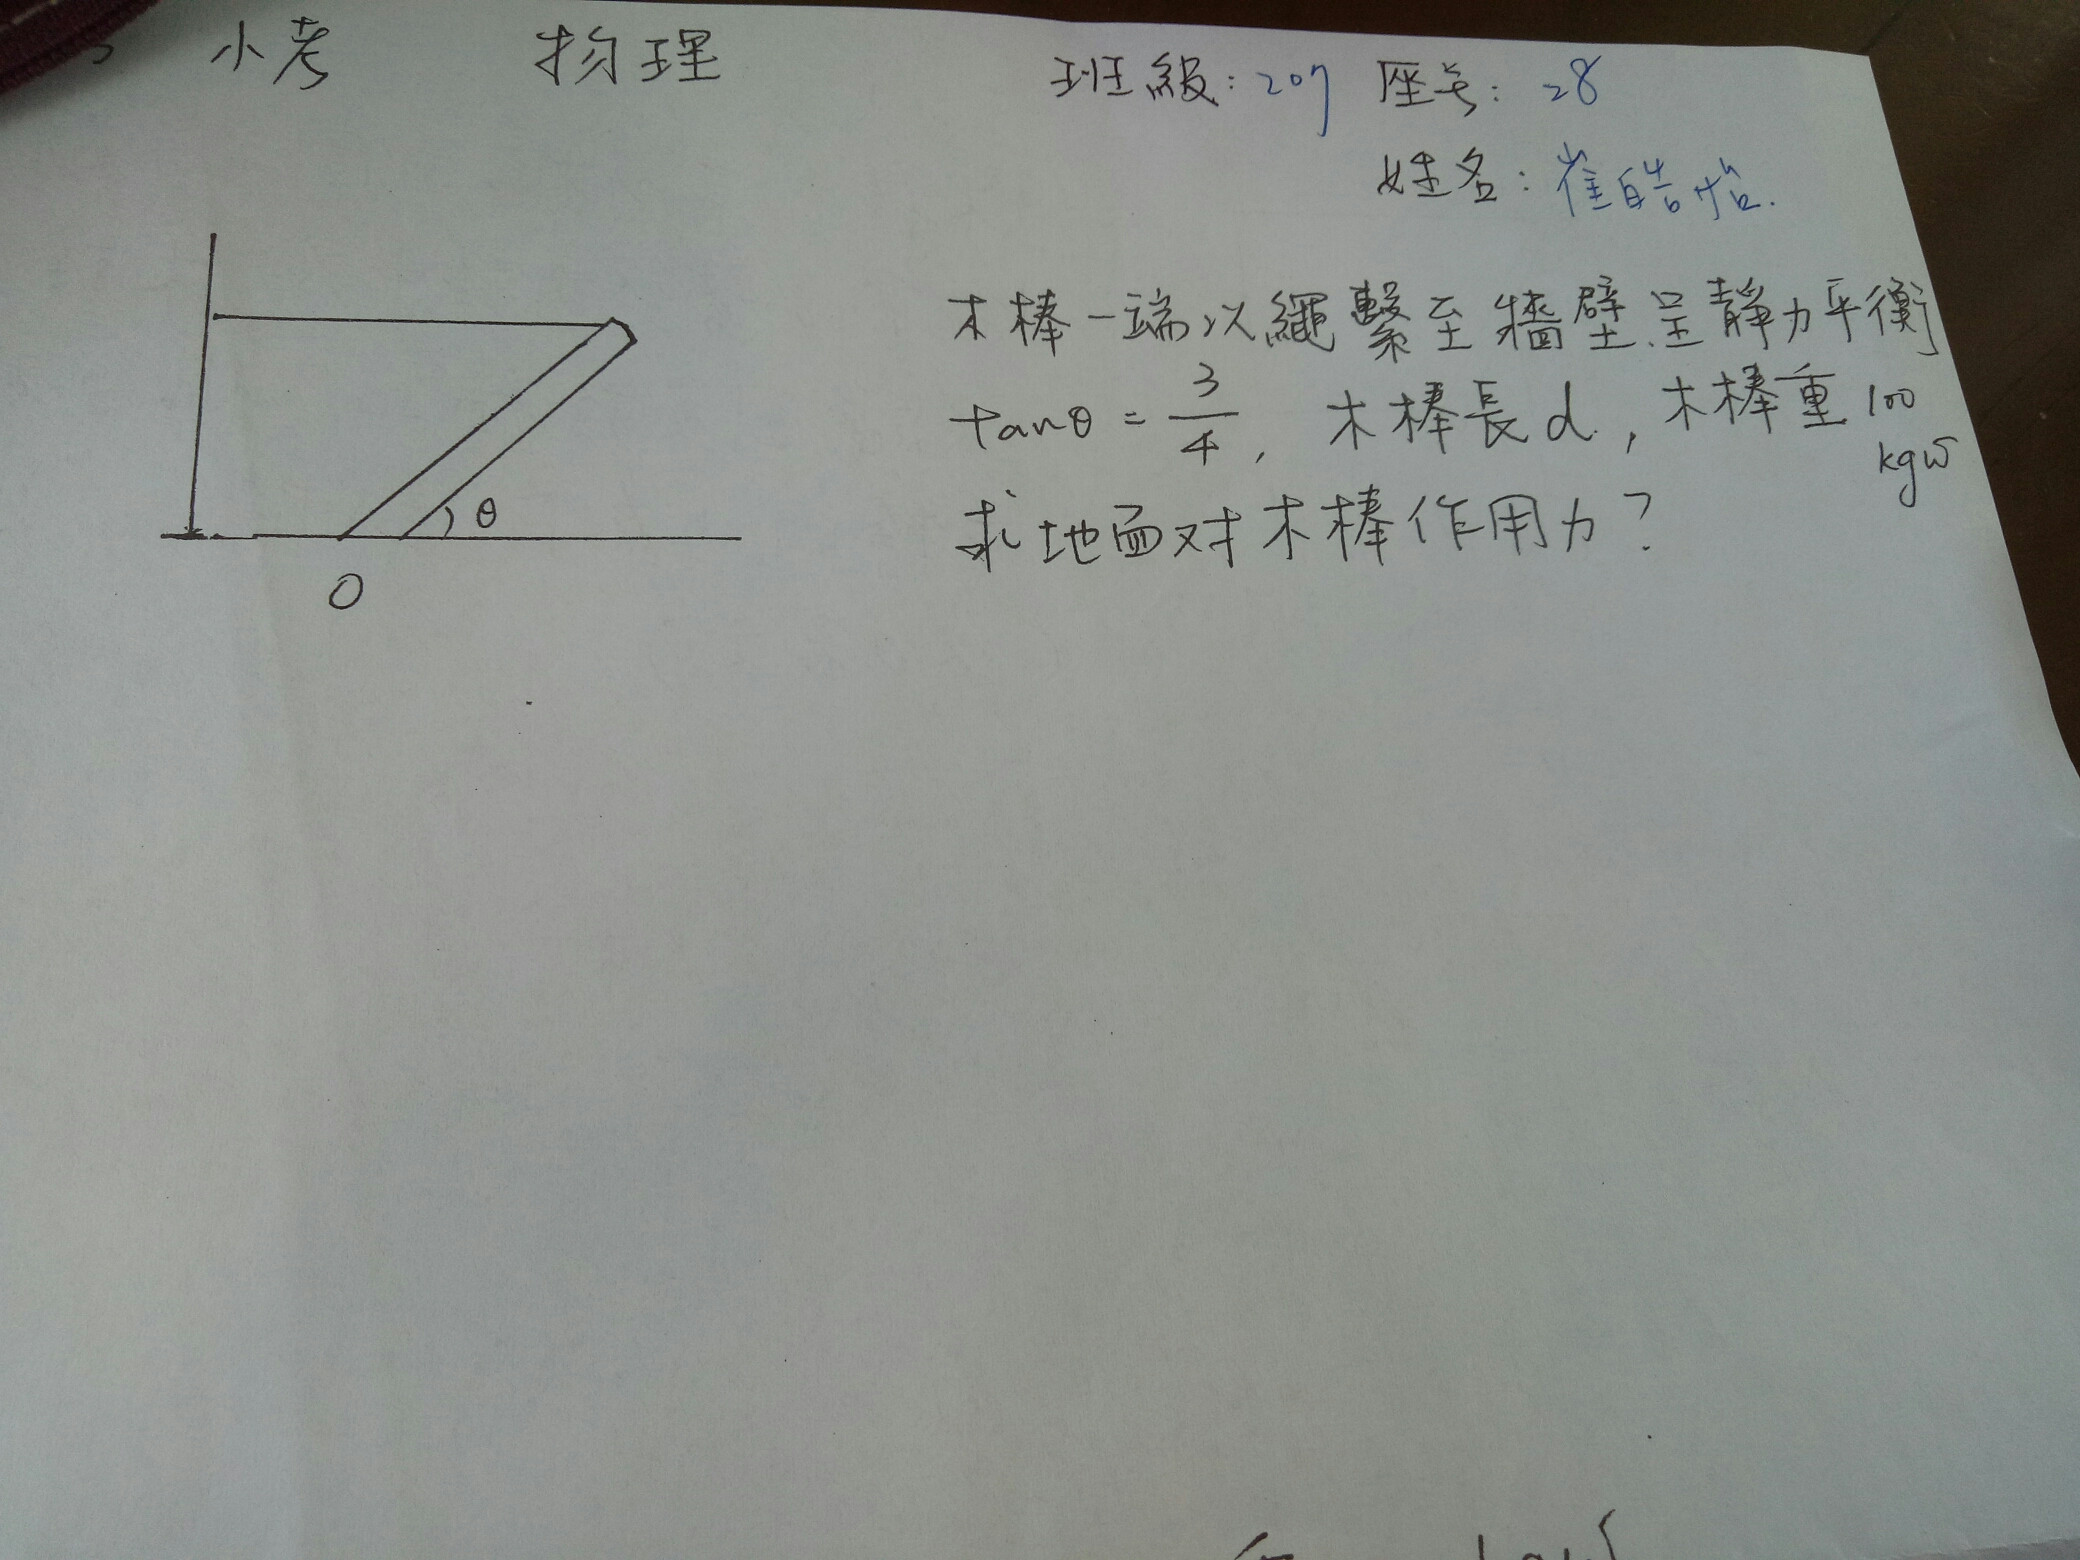 小考 物理 班級：207 座号：28
姓名：崔皓怡.
木棒一端以繩繫至牆壁呈靜力平衡
tanθ = 3/4, 木棒長d, 木棒重100 kgw
求地面对木棒作用力?
θ
O